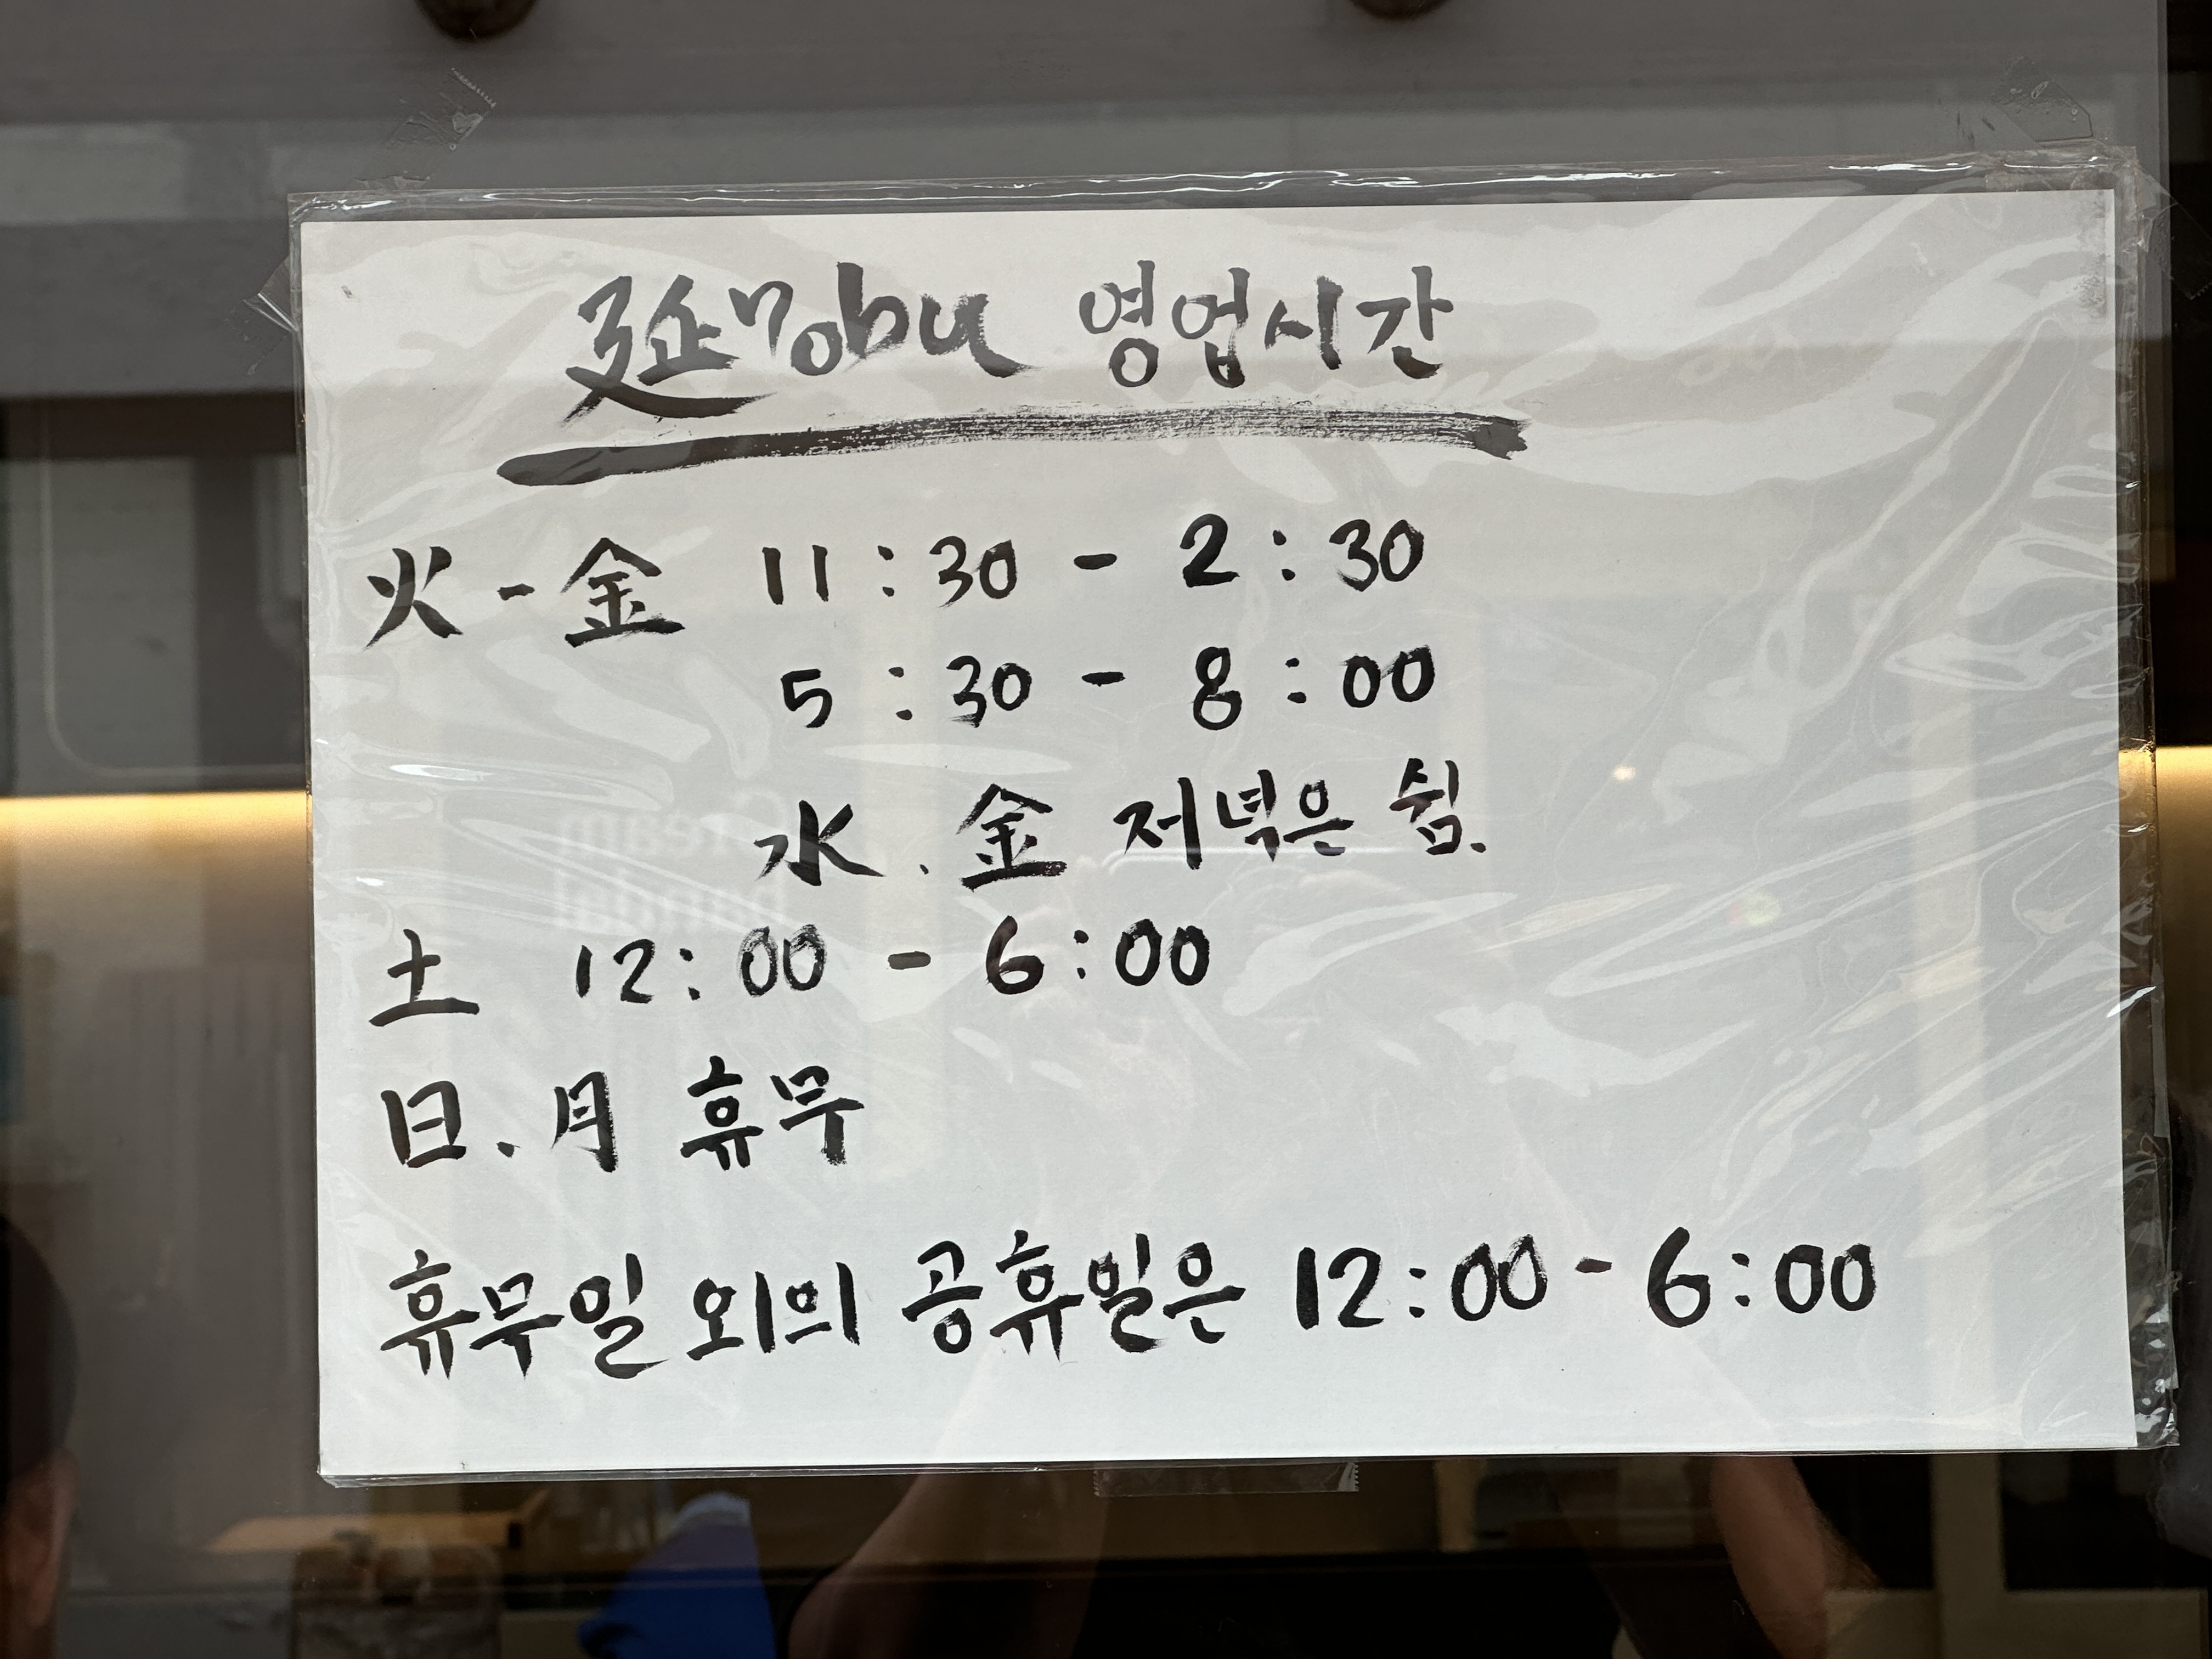 延nobu 영업시간
火-金 11:30 - 2:30
5:30 - 8:00
水.金 저녁은 쉼.
土 12:00 - 6:00
日.月 휴무
휴무일 외의 공휴일은 12:00-6:00